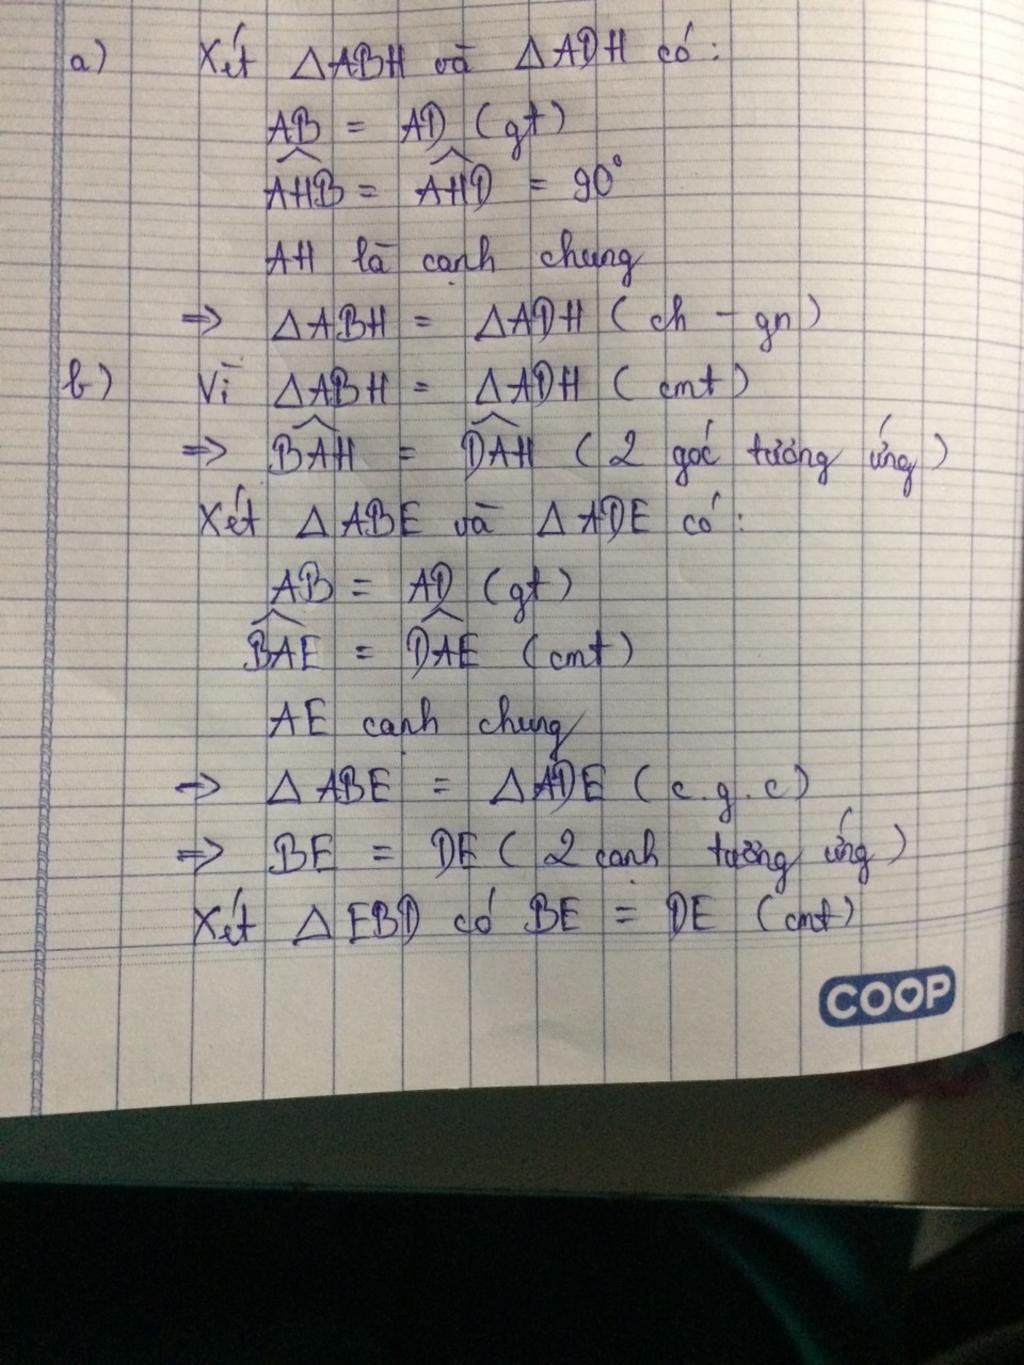 a) Xét △ABH và △ADH có:
AB = AD (gt)
$\widehat{AHB}$ = $\widehat{AHD}$ = 90°
AH là cạnh chung
⇒ △ABH = △ADH (ch - gn)
b) Vì △ABH = △ADH (cmt)
⇒ $\widehat{BAH}$ = $\widehat{DAH}$ (2 góc tương ứng)
Xét △ABE và △ADE có:
AB = AD (gt)
$\widehat{BAE}$ = $\widehat{DAE}$ (cmt)
AE cạnh chung
⇒ △ABE = △ADE (c.g.c)
⇒ BE = DE (2 cạnh tương ứng)
Xét △EBD có BE = DE (cmt)
COOP